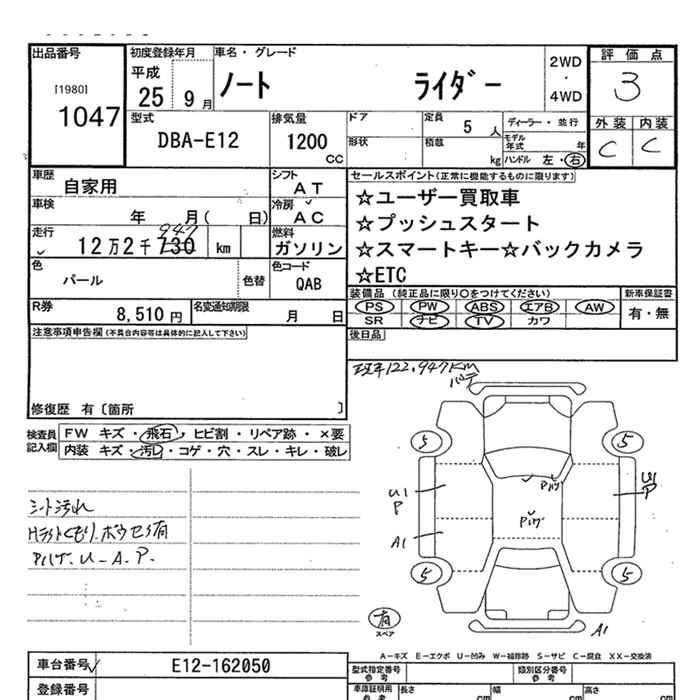 出品番号
[1980]
1047
初度登録年月
平成
25 9月
車名・グレード
ノート ライダー
2WD
・
4WD
評価点
3
外装 内装
C C
型式
DBA-E12
排気量
1200
CC
ドア
形状
定員 5 人
積載 kg
ディーラー・並行
モデル年式 年
ハンドル 左・右
車歴
自家用
シフト
AT
セールスポイント(正常に機能するものに限ります)
☆ユーザー買取車
☆プッシュスタート
☆スマートキー☆バックカメラ
☆ETC
車検
年 月( 日)
冷房
AC
走行
947
12万2千730 km
燃料
ガソリン
色
パール
色替
色コード
QAB
装備品(純正品に限り○をつけてください)
PS PW ABS エアB AW
SR ナビ TV カワ
新車保証書
有・無
R券
8,510円
名変通知期限
月 日
後日品
注意事項申告欄(不具合内容等は具体的に記入して下さい)
修復歴 有〔箇所 〕
現車122,947KM
検査員
記入欄
FW キズ・飛石・ヒビ割・リペア跡・×要
内装 キズ・汚レ・コゲ・穴・スレ・キレ・破レ
シート汚れ
Hライトくもり.ボウセイ有
Pハゲ.U-A.P.
5 5
U1
P
A1
Pハゲ
Pハゲ
U1
P
5 5
有
スペア
A1
A-キズ E-エクボ U-凹み W-補修跡 S-サビ C-腐食 XX-交換済
車台番号
E12-162050
登録番号
型式指定番号
参考
類別区分番号
参考
車庫証明用
参考
長さ cm
幅 cm
高さ cm